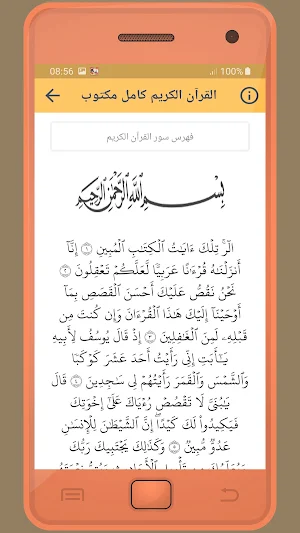 08:56 100%
القرآن الكريم كامل مكتوب
فهرس سور القرآن الكريم
بِسْمِ ٱللَّهِ ٱلرَّحْمَٰنِ ٱلرَّحِيمِ
الٓرۚ تِلْكَ ءَايَٰتُ ٱلْكِتَٰبِ ٱلْمُبِينِ ١ إِنَّآ
أَنزَلْنَٰهُ قُرْءَٰنًا عَرَبِيًّا لَّعَلَّكُمْ تَعْقِلُونَ ٢
نَحْنُ نَقُصُّ عَلَيْكَ أَحْسَنَ ٱلْقَصَصِ بِمَآ
أَوْحَيْنَآ إِلَيْكَ هَٰذَا ٱلْقُرْءَانَ وَإِن كُنتَ مِن
قَبْلِهِۦ لَمِنَ ٱلْغَٰفِلِينَ ٣ إِذْ قَالَ يُوسُفُ لِأَبِيهِ
يَٰٓأَبَتِ إِنِّي رَأَيْتُ أَحَدَ عَشَرَ كَوْكَبًا
وَٱلشَّمْسَ وَٱلْقَمَرَ رَأَيْتُهُمْ لِي سَٰجِدِينَ ٤ قَالَ
يَٰبُنَيَّ لَا تَقْصُصْ رُءْيَاكَ عَلَىٰٓ إِخْوَتِكَ
فَيَكِيدُواْ لَكَ كَيْدًاۖ إِنَّ ٱلشَّيْطَٰنَ لِلْإِنسَٰنِ
عَدُوٌّ مُّبِينٌ ٥ وَكَذَٰلِكَ يَجْتَبِيكَ رَبُّكَ